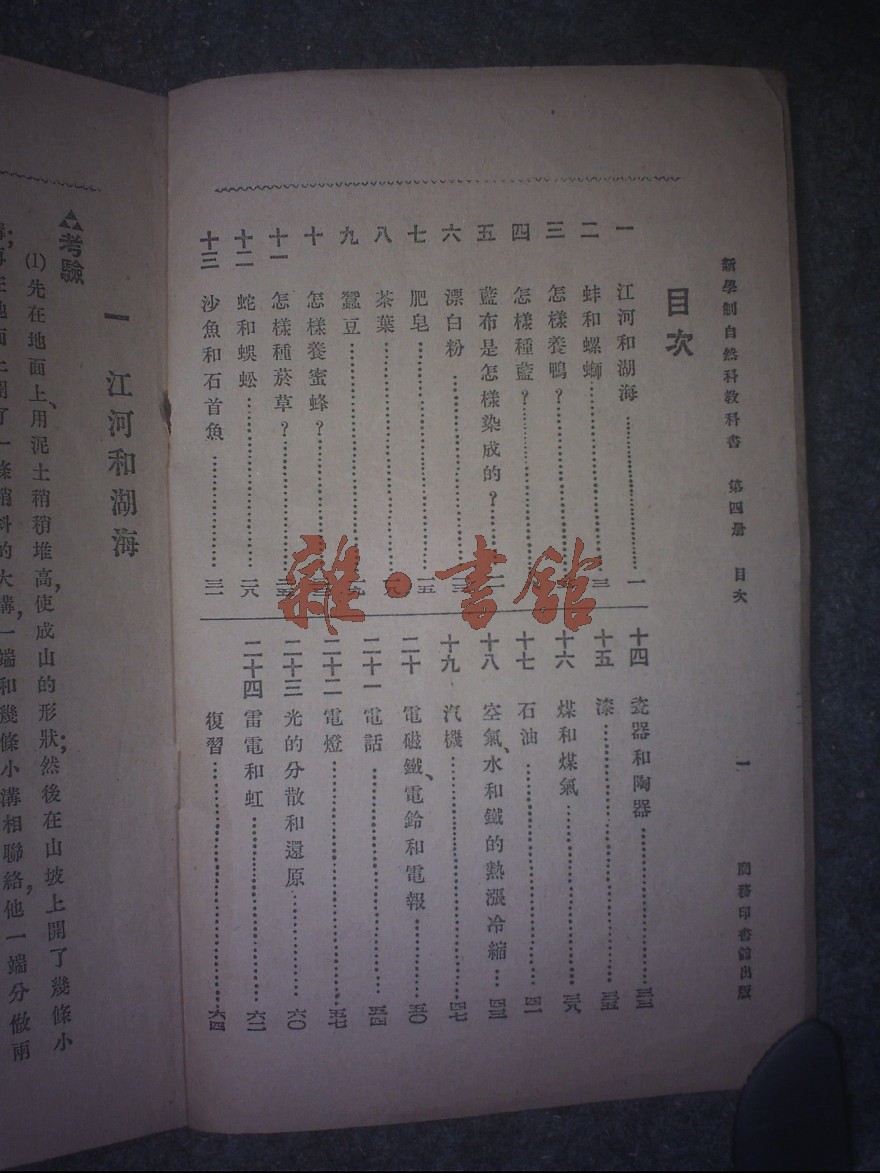 新學制自然科教科書 第四册 目次 一 商務印書館出版
目次
一 江河和湖海 一
二 蚌和螺螄 三
三 怎樣養鴨？
四 怎樣種藍？
五 藍布是怎樣染成的？
六 漂白粉
七 肥皂 一五
八 茶葉
九 蠶豆
十 怎樣養蜜蜂？
十一 怎樣種菸草？ 二五
十二 蛇和蜈蚣 二八
十三 沙魚和石首魚 三一
十四 瓷器和陶器 三三
十五 漆 三五
十六 煤和煤氣 三八
十七 石油 四一
十八 空氣、水和鐵的熱漲冷縮 四三
十九 汽機 四七
二十 電磁鐵、電鈴和電報 五〇
二十一 電話 五四
二十二 電燈 五七
二十三 光的分散和還原 六〇
二十四 雷電和虹 六二
復習 六四
雜·書館
一 江河和湖海
考驗
(1)先在地面上、用泥土稍稍堆高，使成山的形狀；然後在山坡上開了幾條小
溝；再在地面上開了一條稍斜的大溝，一端和幾條小溝相聯絡，他一端分做兩